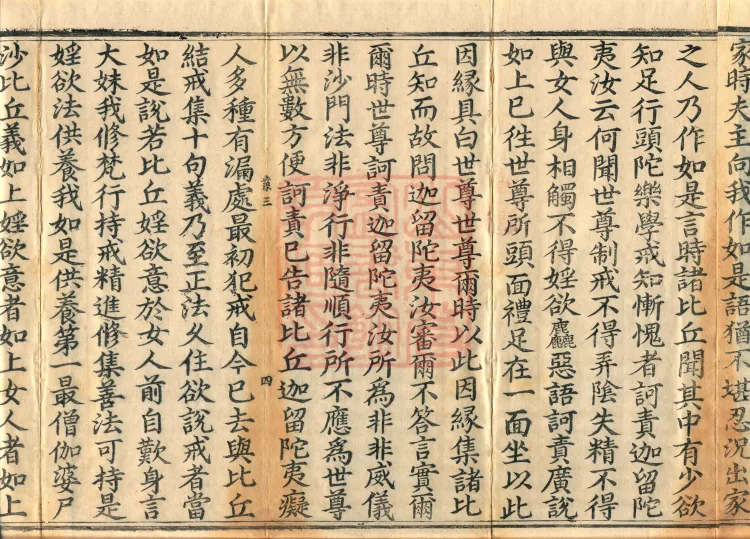 家時夫主向我作如是語猶不堪忍況出家
之人乃作如是言時諸比丘聞其中有少欲
知足行頭陀樂學戒知慚愧者訶責迦留陀
夷汝云何聞世尊制戒不得弄陰失精不得
與女人身相觸不得婬欲麤惡語訶責廣說
如上已往世尊所頭面禮足在一面坐以此
因緣具白世尊世尊爾時以此因緣集諸比
丘知而故問迦留陀夷汝審爾不答言實爾
爾時世尊訶責迦留陀夷汝所為非非威儀
非沙門法非淨行非隨順行所不應為世尊
以無數方便訶責已告諸比丘迦留陀夷癡
四
人多種有漏處最初犯戒自今已去與比丘
結戒集十句義乃至正法久住欲說戒者當
如是說若比丘婬欲意於女人前自歎身言
大妹我修梵行持戒精進修集善法可持是
婬欲法供養我如是供養第一最僧伽婆尸
沙比丘義如上婬欲意者如上女人者如上